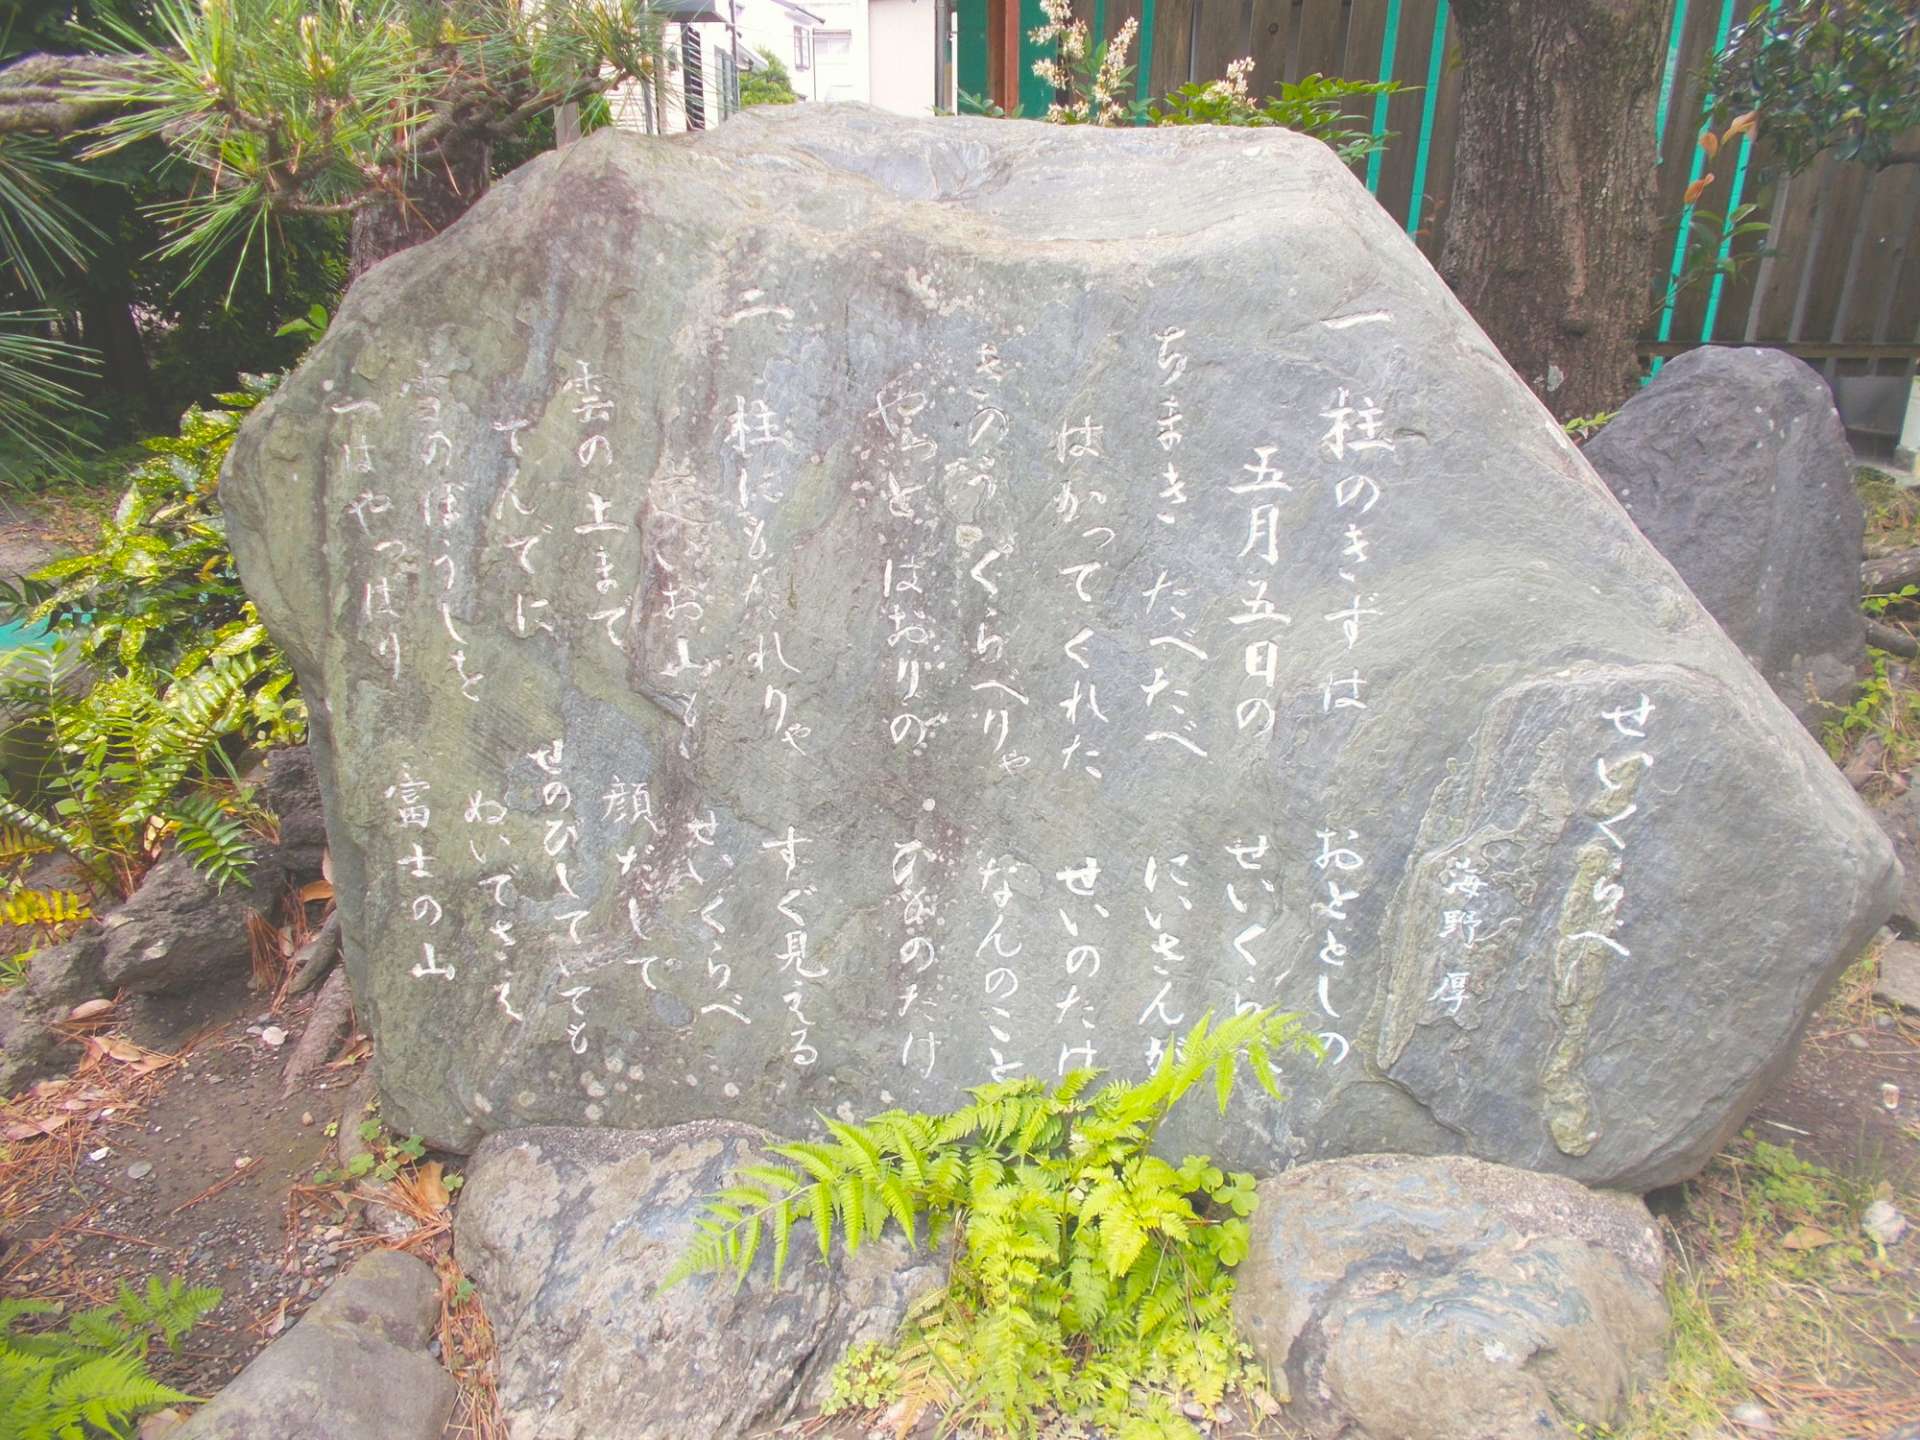 せいくらべ
海野 厚
一 柱のきずは おととしの
五月五日の せいくらべ
ちまき たべたべ にいさんが
はかってくれた せいのたけ
きのうくらべりゃ なんのこと
やっと はおりの ひものたけ
二 柱にもたれりゃ すぐ見える
遠いお山も せいくらべ
雲の上まで 顔だして
てんでに せのびしていても
雪のぼうしを ぬいでさえ
一はやっぱり 富士の山